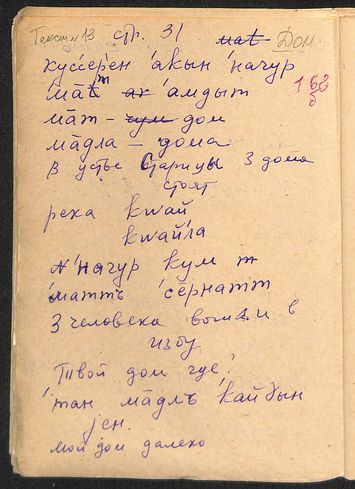 Текст №13 стр. 31 mat Дом.
куссерен акын начур
168
мāт ак амдыт
б
мāт – чум дом
мāдла – дома
в устье Старицы 3 дома
стоят
река квай
квайла
начур кум
мāттъ сернатт
3 человека вошли в
избу
Твой дом где?
тан мāдлъ кайбын
jен.
мой дом далеко